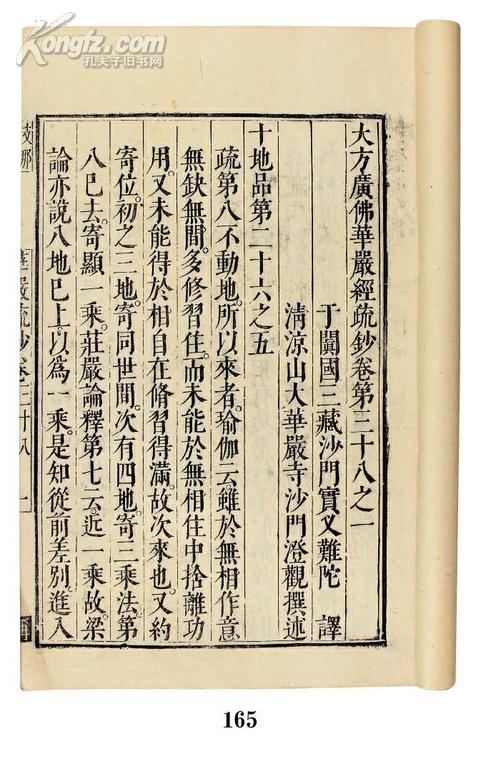 Kongfz.com
孔夫子旧书网
大方廣佛華嚴經疏鈔卷第三十八之一
于闐國三藏沙門實叉難陀 譯
淸涼山大華嚴寺沙門澄觀撰述
十地品第二十六之五
疏第八不動地。所以來者。瑜伽云。雖於無相作意
無缺無間。多修習住。而未能於無相住中捨離功
用。又未能得於相自在。脩習得滿。故次來也。又約
寄位。初之三地。寄同世間。次有四地。寄三乘法。第
八已去。寄顯一乘。莊嚴論釋第七云。近一乘故。梁
論亦說八地已上。以爲一乘。是知從前差別。進入
華嚴疏鈔卷三十八 一
165